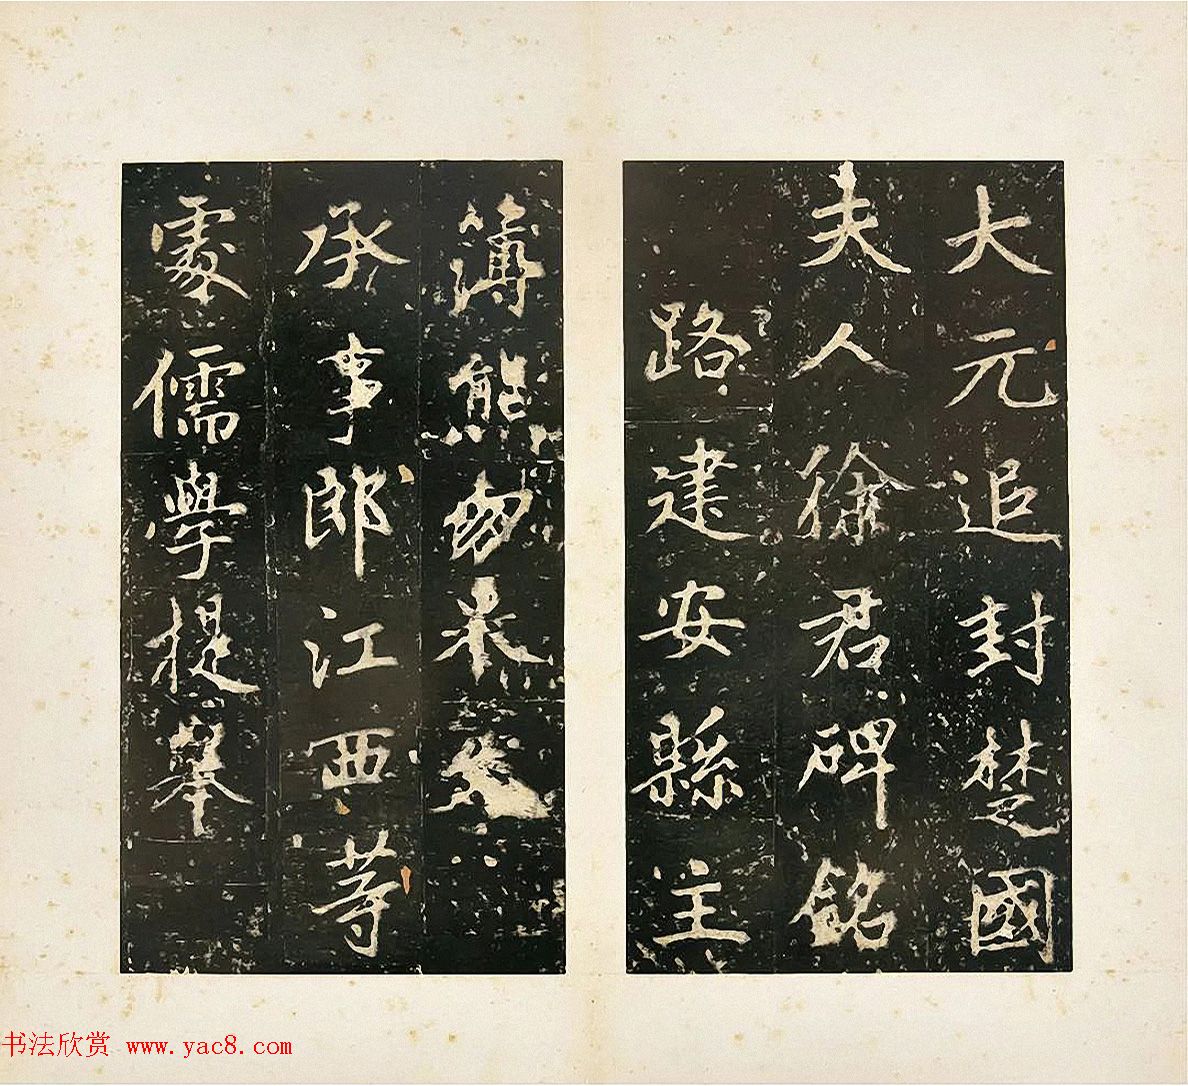 大元追封楚國
夫人徐君碑銘
路建安縣主
簿熊朋來文
承事郎江西等
處儒學提舉
书法欣赏 www.yac8.com